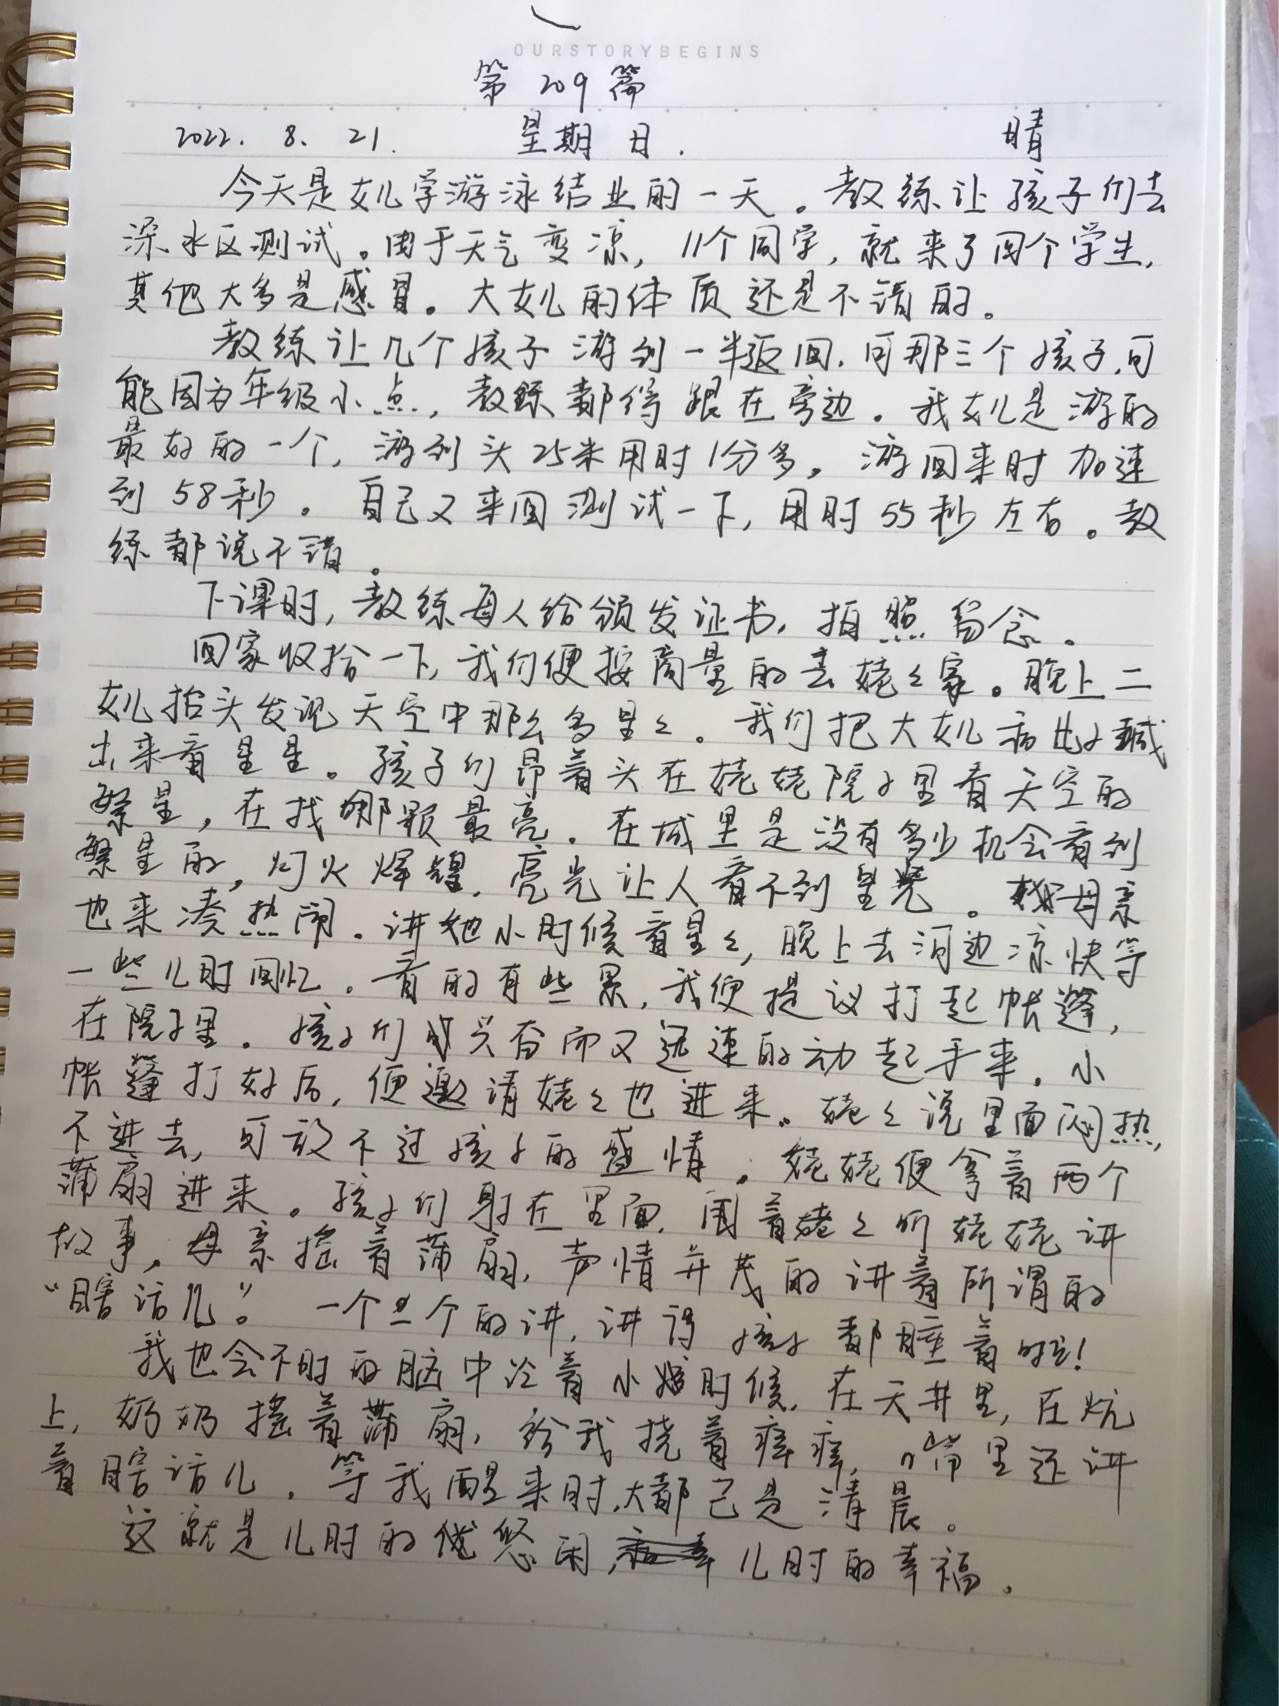 OURSTORYBEGINS
第209篇
2022. 8. 21. 星期日. 晴
今天是女儿学游泳结业的一天。教练让孩子们去
深水区测试。由于天气变凉,11个同学,就来了四个学生,
其他大多是感冒。大女儿的体质还是不错的。
教练让几个孩子游到一半返回.可那三个孩子,可
能因为年级小点,教练都得跟在旁边。我女儿是游的
最好的一个,游到头25米用时1分多。游回来时加速
到58秒。自己又来回测试一下,用时55秒左右。教
练都说不错。
下课时,教练每人给颁发证书,拍照留念。
回家收拾一下,我们便按商量的去姥々家。晚上二
女儿抬头发现天空中那么多星々。我们把大女儿 喊
出来看星星。孩子们昂着头在姥姥院子里看天空的
繁星,在找哪颗最亮.在城里是没有多少机会看到
繁星的,灯火辉煌.亮光让人看不到星光。我母亲
也来凑热闹.讲她小时候看星々,晚上去河边凉快等
一些儿时回忆.看的有些累,我便提议打起帐篷,
在院子里。孩子们 兴奋而又迅速的动起手来.小
帐篷打好后,便邀请姥々也进来。姥々说里面闷热,
不进去,可敌不过孩子的盛情。姥姥便拿着两个
蒲扇进来。孩子们躺在里面,围着姥々听姥姥讲
故事,母亲摇着蒲扇,声情并茂的讲着所谓的
“瞎话儿”。一个一个的讲,讲得孩子都睡着啦!
我也会不时的脑中 着小 时候,在天井里,在炕
上,奶奶摇着蒲扇,给我挠着痒痒,嘴里还讲
着瞎话儿.等我醒来时,大都已是清晨。
这就是儿时的 悠闲, 儿时的幸福。